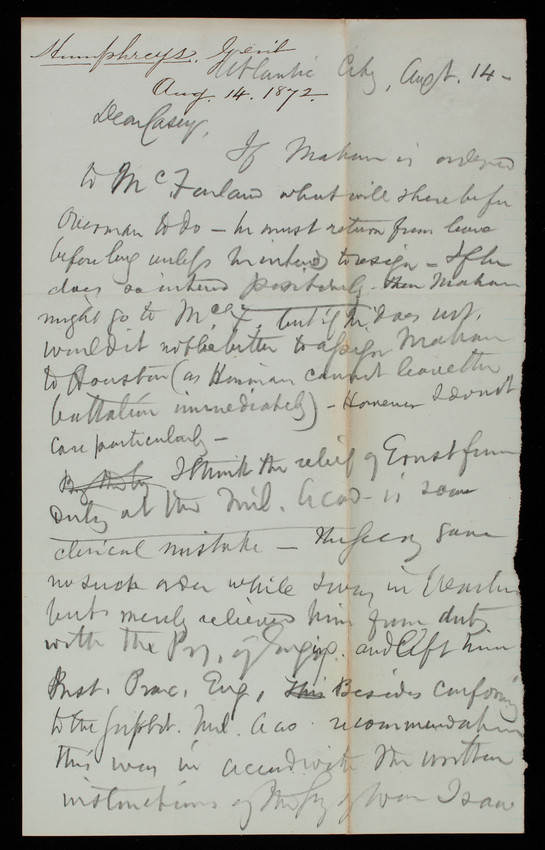 Humphreys. Genl
Atlantic City, Augt. 14 -
Aug. 14. 1872.
Dear Casey,
If Mahan is ordered
to McFarland what will there be for
Overman to do - he must return from leave
before long unless he intends to resign - If he
does so intend positively - then Mahan
might go to McF, but if he does not,
would it not be better to assign Mahan
to Houston (as Heuman cannot leave the
battalion immediately) - However I do not
care particularly -
By the by I think the relief of Ernst from
duty at the Mil. Acad - is some
clerical mistake - The Secy gave
no such order while I was in
but merely relieved him from duty
with the Prof. of Engrg. and left him
Inst. Prac. Eng, This Besides conforming
to the Supdt. Mil. Acad. recommendation
this was in accord with the written
instructions of the Secy of War I saw